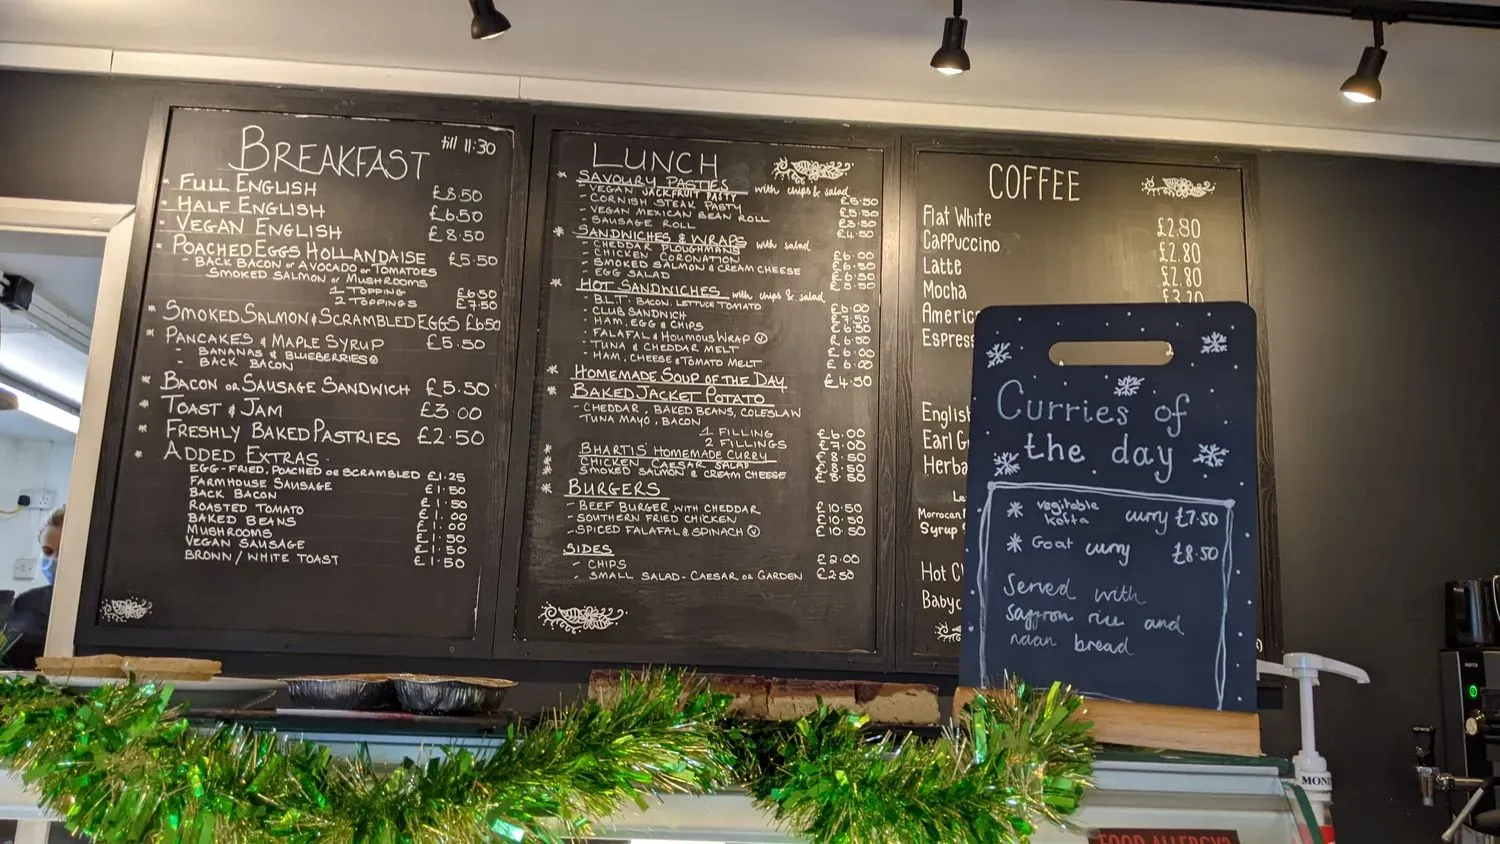 BREAKFAST till 11:30
* FULL ENGLISH £8.50
* HALF ENGLISH £6.50
* VEGAN ENGLISH £8.50
* POACHED EGGS HOLLANDAISE £5.50
- BACK BACON or AVOCADO or TOMATOES
SMOKED SALMON or MUSHROOMS
1 TOPPING £6.50
2 TOPPINGS £7.50
* SMOKED SALMON & SCRAMBLED EGGS £6.50
* PANCAKES & MAPLE SYRUP £5.50
- BANANAS & BLUEBERRIES
- BACK BACON
* BACON OR SAUSAGE SANDWICH £5.50
* TOAST & JAM £3.00
* FRESHLY BAKED PASTRIES £2.50
* ADDED EXTRAS
EGG-FRIED, POACHED OR SCRAMBLED £1.25
FARMHOUSE SAUSAGE £1.50
BACK BACON £1.50
ROASTED TOMATO £1.00
BAKED BEANS £1.00
MUSHROOMS £1.50
VEGAN SAUSAGE £1.50
BROWN/WHITE TOAST £1.50
LUNCH
* SAVOURY PASTIES with chips & salad
- VEGAN JACKFRUIT PASTY £5.50
- CORNISH STEAK PASTY £5.50
- VEGAN MEXICAN BEAN ROLL £5.50
- SAUSAGE ROLL £4.50
* SANDWICHES & WRAPS with salad
- CHEDDAR PLOUGHMANS £6.00
- CHICKEN CORONATION
- SMOKED SALMON & CREAM CHEESE
- EGG SALAD £5.50
* HOT SANDWICHES with chips & salad
- B.L.T. BACON, LETTUCE TOMATO £6.00
- CLUB SANDWICH £7.50
- HAM, EGG & CHIPS £6.50
- FALAFAL & HOUMOUS WRAP Ⓥ
- TUNA & CHEDDAR MELT £6.00
- HAM, CHEESE & TOMATO MELT
* HOMEMADE SOUP OF THE DAY £4.50
* BAKED JACKET POTATO
- CHEDDAR, BAKED BEANS, COLESLAW
TUNA MAYO, BACON
1 FILLING £6.00
2 FILLINGS
* BHARTIS' HOMEMADE CURRY
* CHICKEN CAESAR SALAD
* SMOKED SALMON & CREAM CHEESE
* BURGERS
- BEEF BURGER WITH CHEDDAR £10.50
- SOUTHERN FRIED CHICKEN £10.50
- SPICED FALAFAL & SPINACH Ⓥ £10.50
SIDES
- CHIPS £2.00
- SMALL SALAD - CAESAR OR GARDEN £2.50
COFFEE
Flat White £2.80
Cappuccino £2.80
Latte £2.80
Mocha £3.20
Americ
Espress
English
Earl G
Herba
Le
Morrocan
Syrup S
Hot C
Babyc
Curries of
the day
* vegitable
kofta curry £7.50
* Goat curry £8.50
Served with
saffron rice and
naan bread
MON
FOOD ALLERGY?